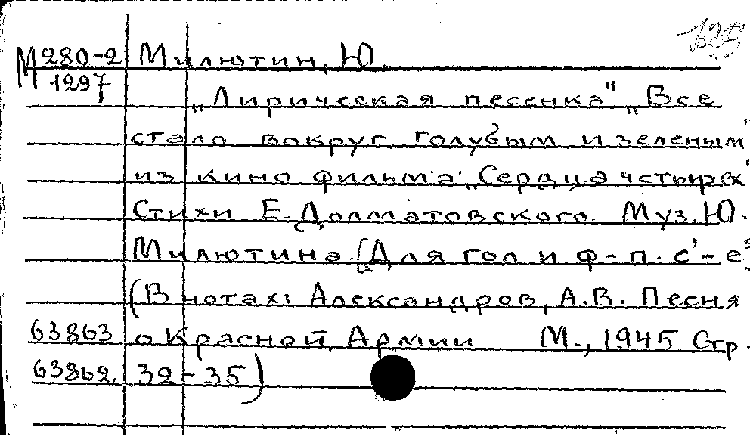 М 280-2 Милютин, Ю.
1297
„Лирическая песенка" „Все
стало вокруг голубым и зеленым"
из кино фильма „Сердца четырех"
Стихи Е. Долматовского. Муз. Ю.
Милютина [Для гол и ф-п. c'-e²]
(В нотах: Александров, А.В. Песня
63863 о Красной Армии М., 1945 Стр.
63862. 32-35)